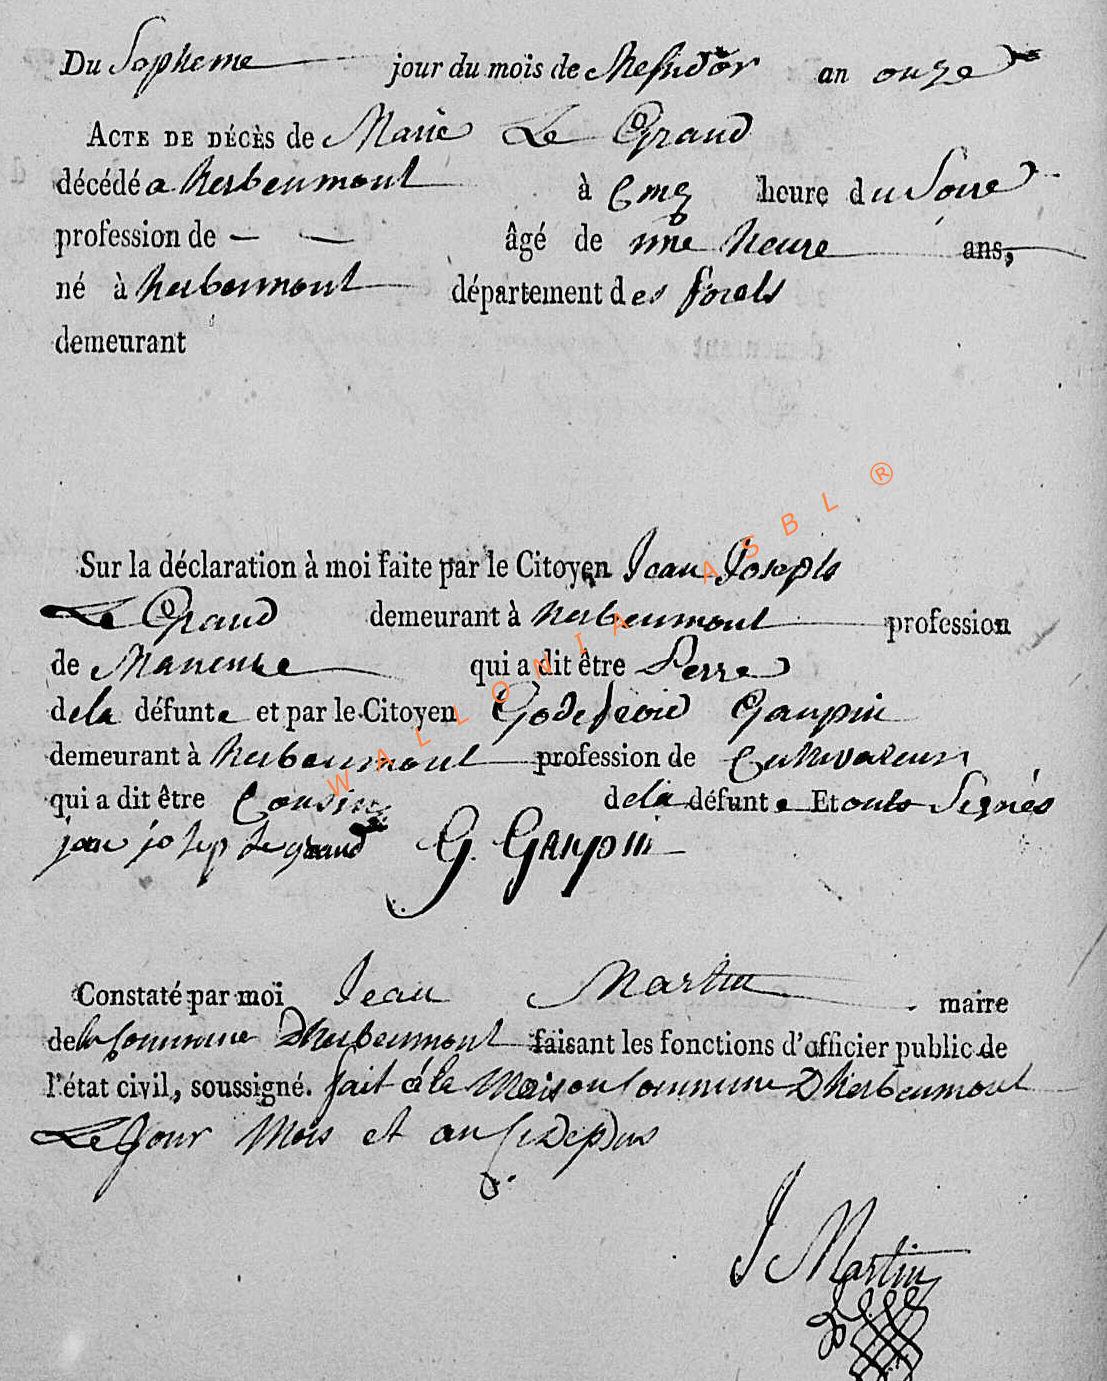 Du Sepheme jour du mois de Messidor an onze
ACTE DE DÉCÈS de Marie Le Grand
décédé a herbeumont à Cinq heure du Soire
profession de — — âgé de une heure ans,
né à herbeumont département des forets
demeurant
Sur la déclaration à moi faite par le Citoyen Jean Joseph
Le Grand demeurant à herbeumont profession
de Maneuvre qui a dit être Perre
dela défunte et par le Citoyen Godefroid Gaupin
demeurant à herbeumont profession de Cultivateur
qui a dit être Cousin dela défunte Et onts Segnés
jean josep le grand G. Gaupin
Constaté par moi Jean Martin maire
de la Commune Dherbeumont faisant les fonctions d'officier public de
l'état civil, soussigné. fait à la Maison Commune Dherbeumont
Le Jour Mois et an Ci Depsus
J Martin
WALLONIA ASBL ®